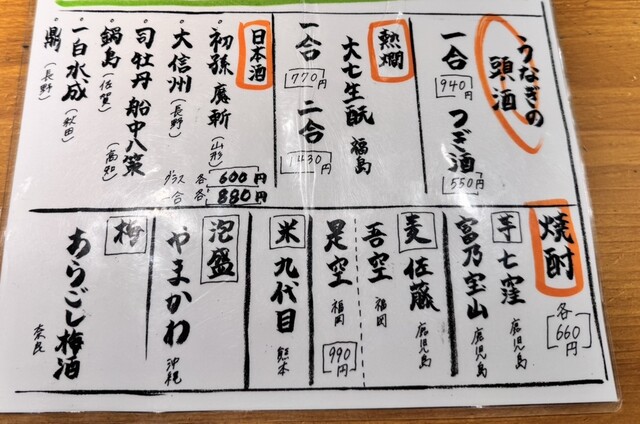 うなぎの
頭酒
一合 940円
つぎ酒 550円
熱燗
大七生酛 福島
一合 770円
二合 1430円
日本酒
初孫 魔斬 (山形)
大信州 (長野)
司牡丹 船中八策 (高知)
鍋島 (佐賀)
一白水成 (秋田)
鼎 (長野)
グラス 各 600円
一合 各 880円
焼酎
各 660円
芋 七窪 鹿児島
富乃宝山 鹿児島
麦 佐藤 鹿児島
吾空 福岡
是空 福岡 990円
米 九代目 熊本
泡盛
やまかわ 沖縄
梅
あらごし梅酒 奈良